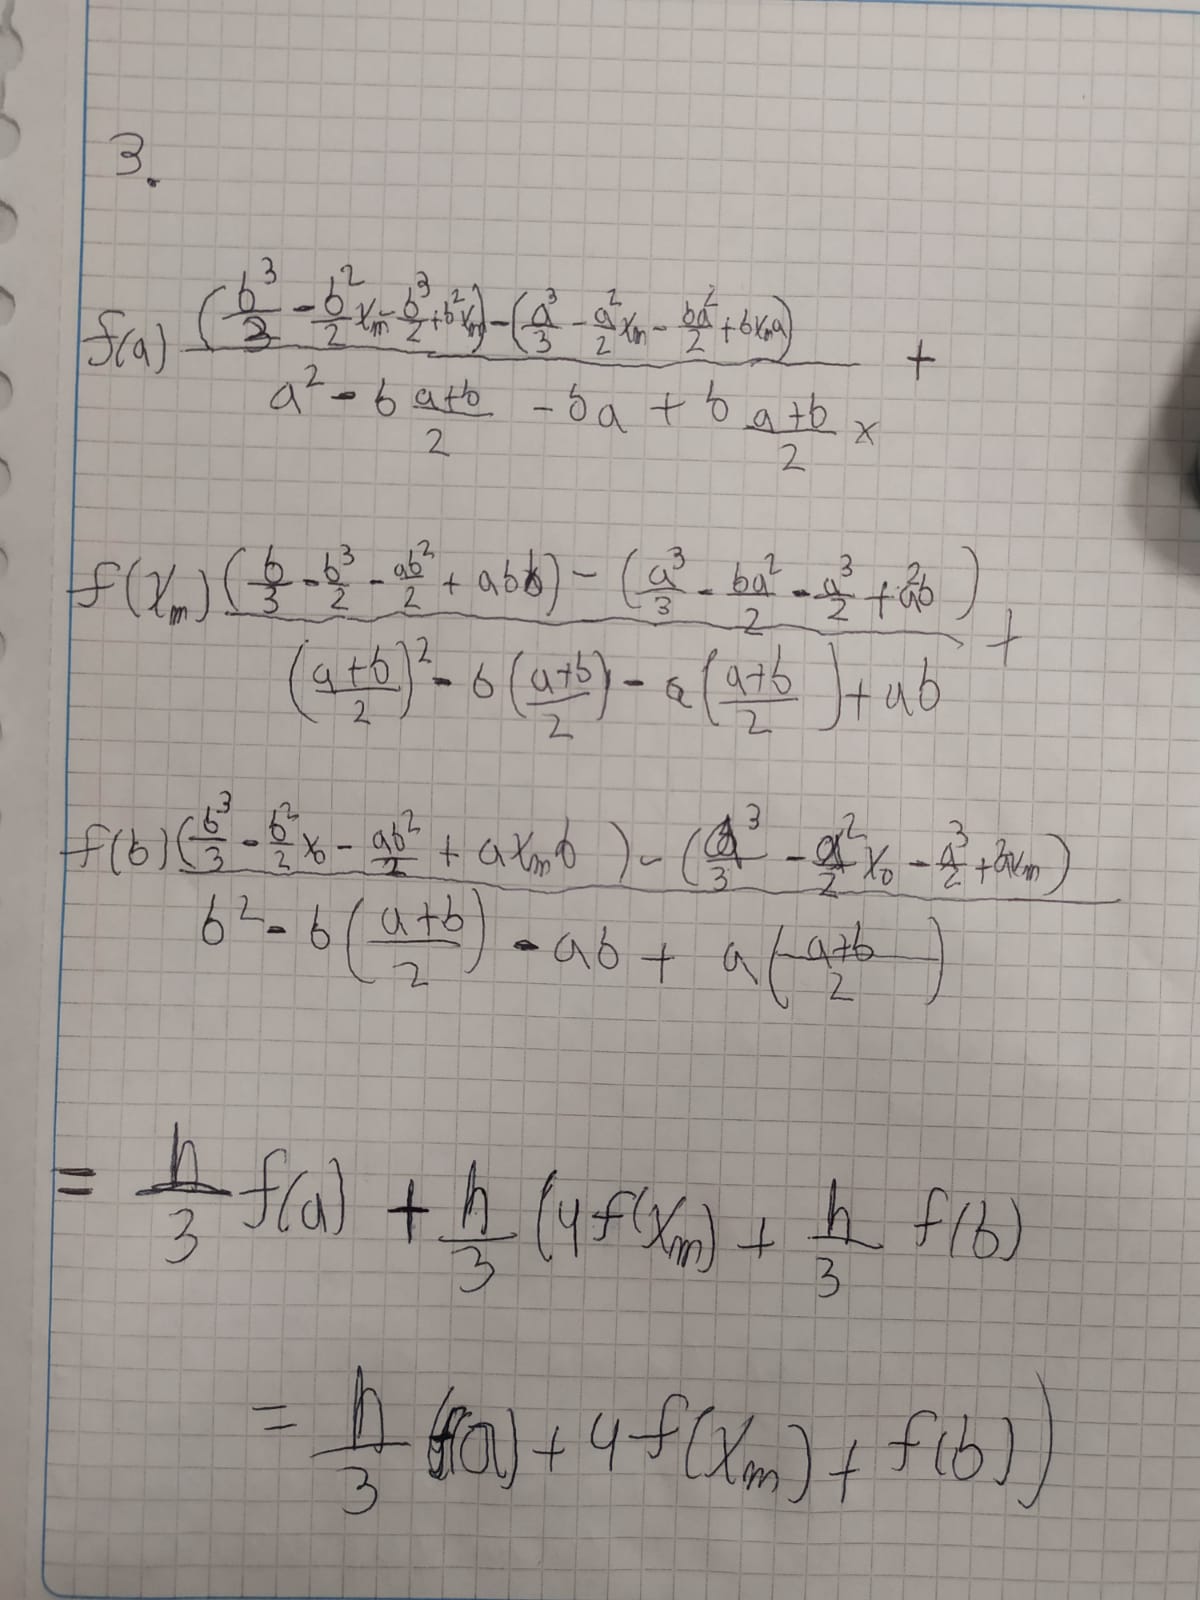 3.
f(a) (b³/3 - b²/2 xₘ - b³/2 + b²xₘ) - (a³/3 - a²/2 xₘ - ba²/2 + bxₘa) / a² - b a+b/2 - ba + b a+b/2 x +
f(xₘ) (b/3 - b³/2 - ab²/2 + abb) - (a³/3 - ba²/2 - a³/2 + a²b) / (a+b/2)² - b(a+b/2) - a(a+b/2) + ab +
f(b) (b³/3 - b²/2 x₀ - ab²/2 + axₘb) - (a³/3 - a²/2 x₀ - a³/2 + a²xₘ) / b² - b(a+b/2) - ab + a(a+b/2)
= h/3 f(a) + h/3 (4f(xₘ) + h/3 f(b)
= h/3 (f(a) + 4f(xₘ) + f(b))